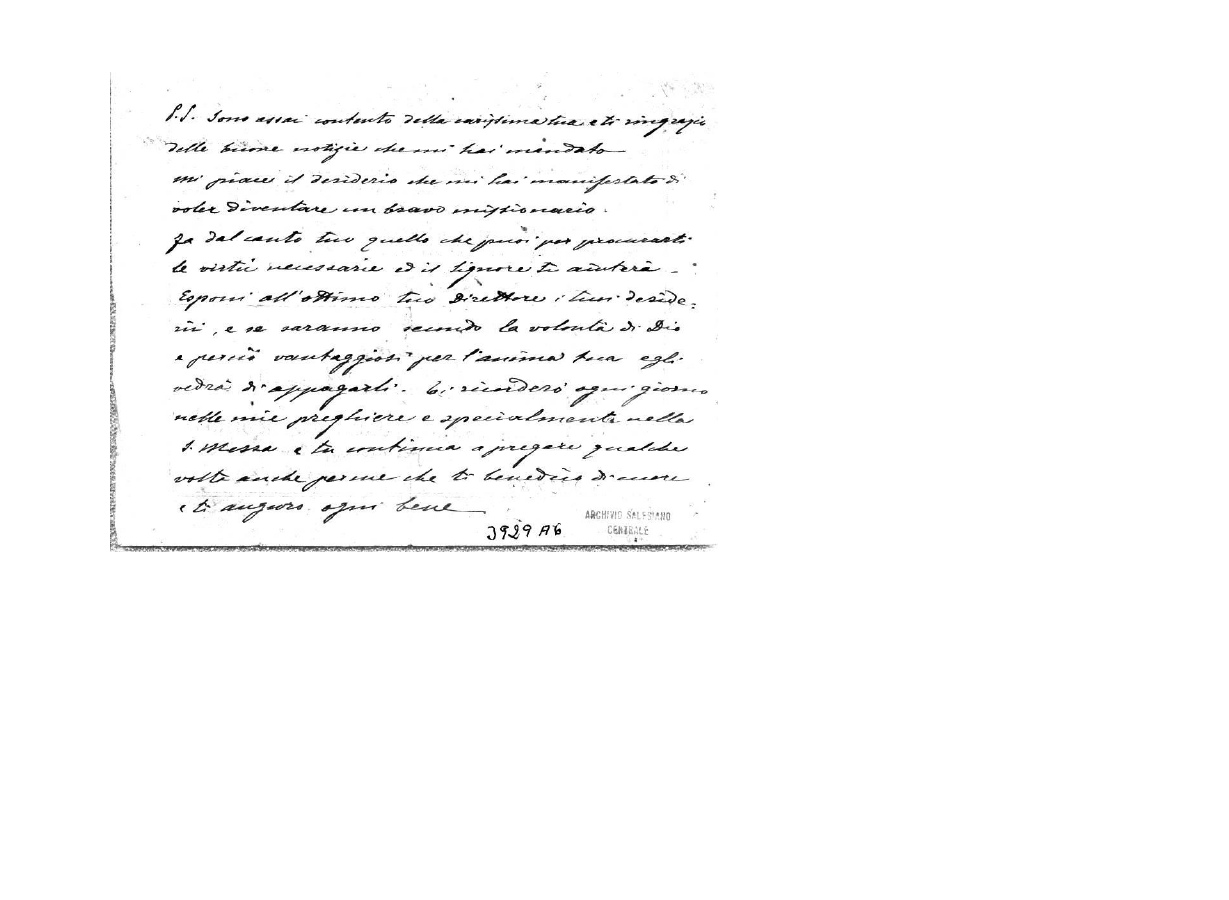 P.S. Sono assai contento della carissima tua e ti ringrazio
delle buone notizie che mi hai mandato
Mi piace il desiderio che mi hai manifestato di
voler diventare un bravo missionario.
Fa dal canto tuo quello che puoi per procurarti
le virtù necessarie ed il Signore ti aiuterà -
Esponi all'ottimo tuo Direttore i tuoi deside=
rii, e se saranno secondo la volontà di Dio
e perciò vantaggiosi per l'anima tua egli
vedrà di appagarli. Ti ricorderò ogni giorno
nelle mie preghiere e specialmente nella
S. Messa e tu continua a pregare qualche
volta anche per me che ti benedico di cuore
e ti auguro ogni bene
3929 A6
ARCHIVIO SALESIANO
CENTRALE